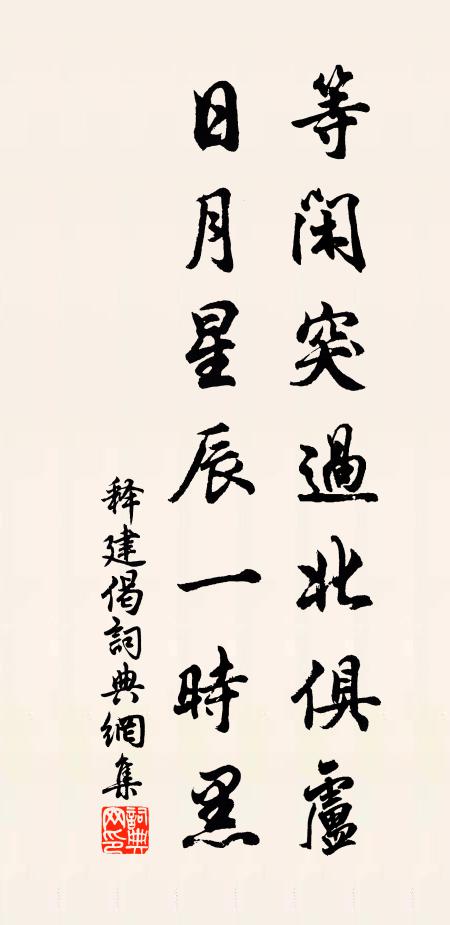 等閑突過北俱盧
日月星辰一時黑
释建偈詞典網集
詞典网印